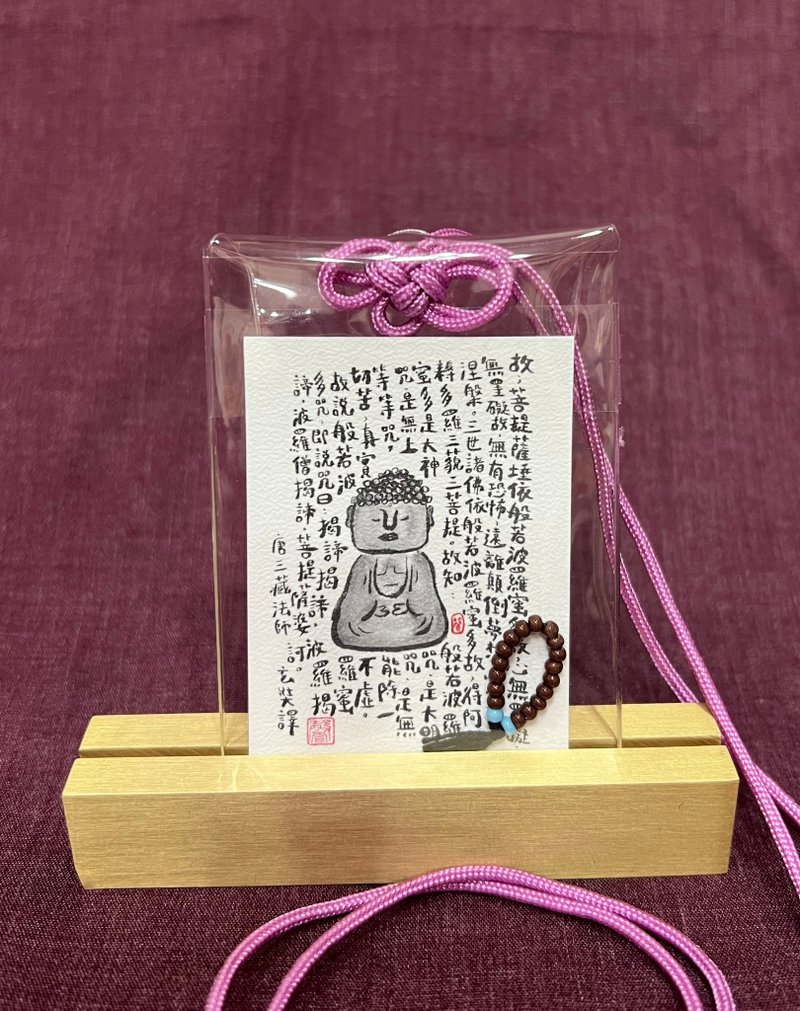 故,菩提薩埵依般若波羅蜜多故心無罣礙
無罣礙故,無有恐怖,遠離顛倒夢
涅槃。三世諸佛依般若波羅蜜多故,得阿
耨多羅三藐三菩提。故知:般若波羅
蜜多是大神咒,是大明
咒,是無上咒,是無
等等咒,能除一
切苦,真實不虛。
故說般若波羅蜜
多咒,即說咒曰:揭諦揭諦,波羅揭
諦,波羅僧揭諦,菩提薩婆訶。
唐三藏法師玄奘譯